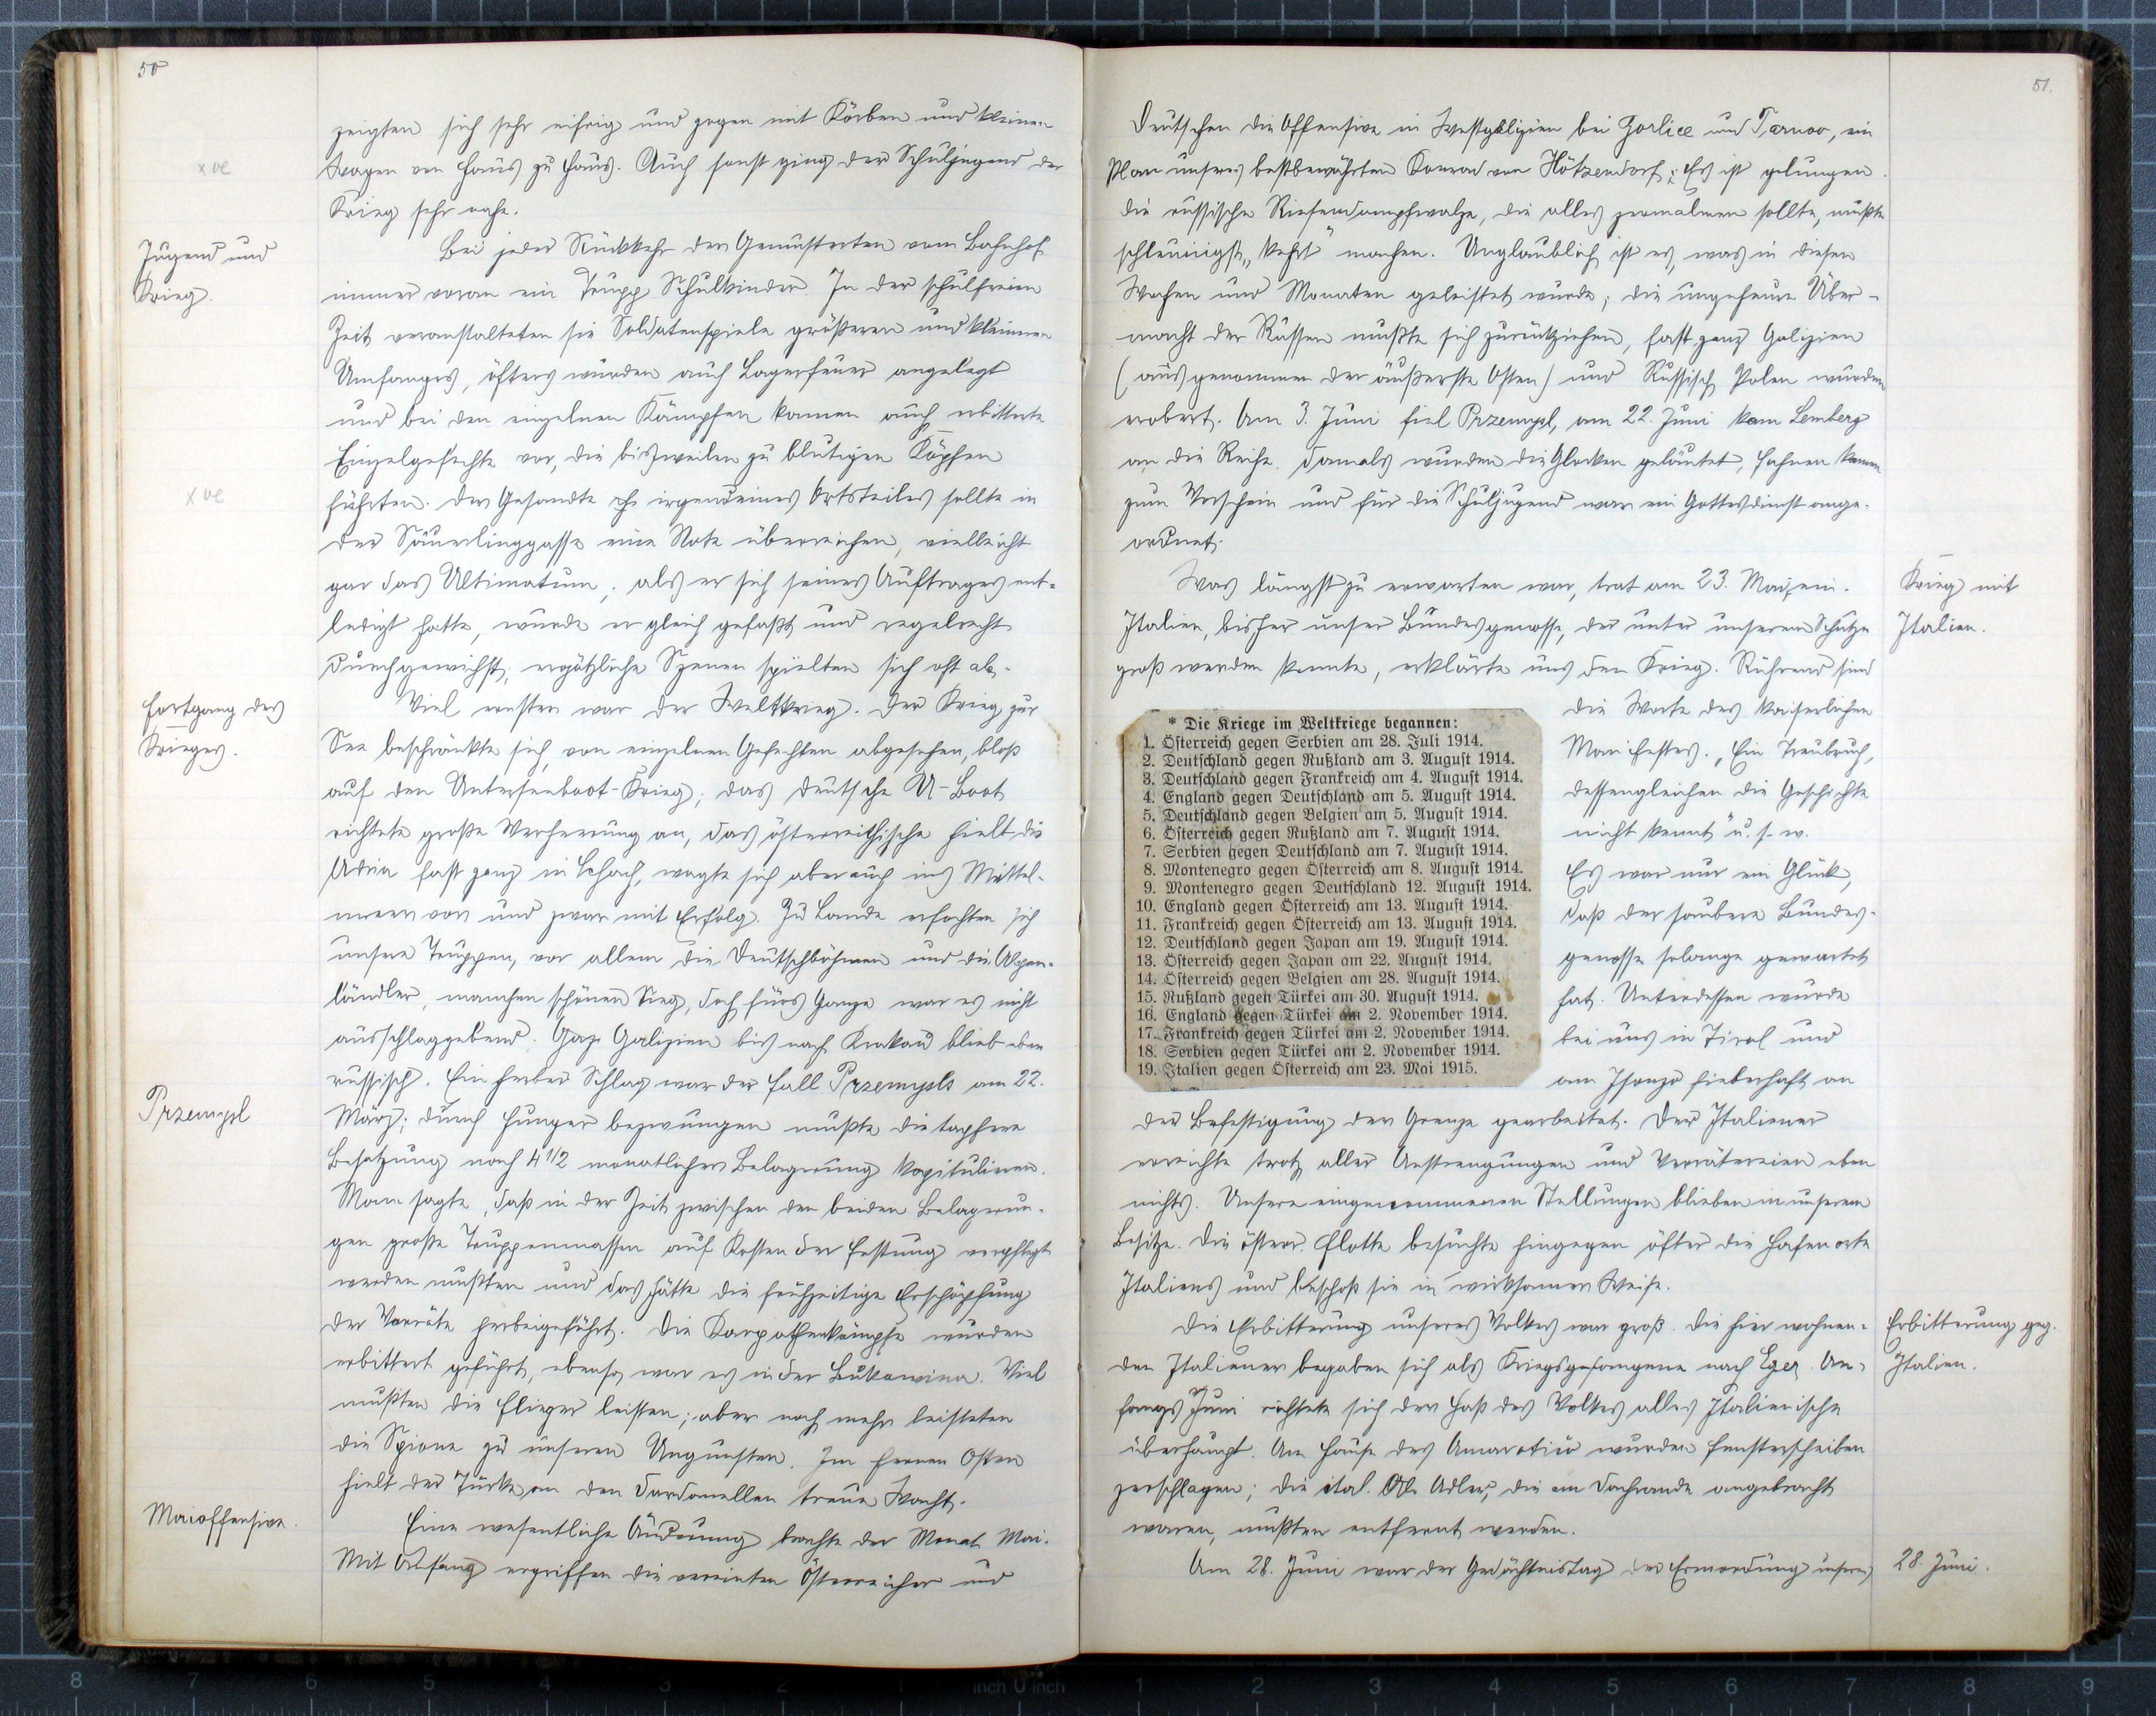 50
zeigten sich sehr eifrig und zogen mit Körben und kleinen
Wagen von Haus zu Haus. Auch sonst ging der Schuljugend der
Krieg sehr nahe.
Jugend und
Krieg.
Bei jeder Rückkehr der Gemusterten vom Bahnhof
immer voran ein Trupp Schulkinder. In der schulfreien
Zeit veranstalteten sie Soldatenspiele größeren und kleineren
Umfanges, öfters wurden auch Lagerfeuer angelegt
und bei den einzelnen Kämpfen kamen auch erbitterte
Einzelgefechte vor, die bisweilen zu blutigen Köpfen
führten. Der Gesandte irgendeines Ortsteiles sollte in
der Säuerlinggasse eine Note überreichen, vielleicht
gar das Ultimatum; als er sich seines Auftrages ent-
ledigt hatte, wurde er gleich gefaßt und regelrecht
durchgewichst; ergötzliche Szenen spielten sich oft ab.
Fortgang des
Krieges.
Viel ernster war der Weltkrieg. Der Krieg zur
See beschränkte sich, von einzelnen Gefechten abgesehen, bloß
auf den Unterseeboot-Krieg; das deutsche U-Boot
richtete große Verheerung an, das österreichische hielt die
Adria fast ganz in Schach, wagte sich aber auch ins Mittel-
meer vor und zwar mit Erfolg. Zu Lande erfochten sich
unsere Truppen, vor allem die Deutschböhmen und die Alpen-
ländler, manchen schönen Sieg, doch fürs Ganze war es nicht
ausschlaggebend. Ganz Galizien bis nach Krakau blieb eben
russisch. Ein herber Schlag war der Fall Przemysls am 22.
Przemysl
März; durch Hunger bezwungen mußte die tapfere
Besatzung nach 4 1/2 monatlicher Belagerung kapitulieren.
Man sagte, daß in der Zeit zwischen den beiden Belagerun-
gen große Truppenmassen auf Kosten der Festung verpflegt
werden mußten und das hätte die frühzeitige Erschöpfung
der Vorräte herbeigeführt. Die Karpathenkämpfe wurden
erbittert geführt, ebenso war es in der Bukowina. Viel
mußten die Flieger leisten; aber noch mehr leisteten
die Spione zu unseren Ungunsten. Im fernen Osten
hielt der Türke an den Dardanellen treue Wacht.
Maioffensive.
Eine wesentliche Änderung brachte der Monat Mai.
Mit Anfang ergriffen die vereinten Österreicher und
51.
Deutschen die Offensive in Westgalizien bei Gorlice und Tarnow, ein
Plan unseres bestbewährten Konrad von Hötzendorf; Es ist gelungen
die russische Riesendampfwalze, die alles zermalmen sollte, mußte
schleunigst „kehrt“ machen. Unglaublich ist es, was in diesen
Wochen und Monaten geleistet wurde; die ungeheure Über-
macht der Russen mußte sich zurückziehen, fast ganz Galizien
(ausgenommen der äußerste Osten) und Russisch Polen wurden
erobert. Am 3. Juni fiel Przemysl, am 22. Juni kam Lemberg
an die Reihe. Damals wurden die Glocken geläutet, Fahnen kamen
zum Vorschein und für die Schuljugend war ein Gottesdienst ange-
ordnet.
Krieg mit
Italien.
Was längst zu erwarten war, trat am 23. Mai ein.
Italien, bisher unser Bundesgenosse, der unter unserem Schutze
groß werden konnte, erklärte uns den Krieg. Rührend sind
die Worte des kaiserlichen
Manifestes. „Ein Treubruch,
dessengleichen die Geschichte
nicht kennt“ u. s. w.
Es war nur ein Glück,
daß der saubere Bundes-
genosse solange gewartet
hat. Unterdessen wurde
bei uns in Tirol und
am Isonzo fieberhaft an
* Die Kriege im Weltkriege begannen:
1. Österreich gegen Serbien am 28. Juli 1914.
2. Deutschland gegen Rußland am 3. August 1914.
3. Deutschland gegen Frankreich am 4. August 1914.
4. England gegen Deutschland am 5. August 1914.
5. Deutschland gegen Belgien am 5. August 1914.
6. Österreich gegen Rußland am 7. August 1914.
7. Serbien gegen Deutschland am 7. August 1914.
8. Montenegro gegen Österreich am 8. August 1914.
9. Montenegro gegen Deutschland 12. August 1914.
10. England gegen Österreich am 13. August 1914.
11. Frankreich gegen Österreich am 13. August 1914.
12. Deutschland gegen Japan am 19. August 1914.
13. Österreich gegen Japan am 22. August 1914.
14. Österreich gegen Belgien am 28. August 1914.
15. Rußland gegen Türkei am 30. August 1914.
16. England gegen Türkei am 2. November 1914.
17. Frankreich gegen Türkei am 2. November 1914.
18. Serbien gegen Türkei am 2. November 1914.
19. Italien gegen Österreich am 23. Mai 1915.
der Befestigung der Grenze gearbeitet. Der Italiener
erreichte trotz aller Anstrengungen und Verrätereien eben
nichts. Unsere eingenommenen Stellungen blieben in unserem
Besitze. Die österr. Flotte besuchte hingegen öfter die Hafenorte
Italiens und beschoß sie in wirksamer Weise.
Erbitterung geg.
Italien.
Die Erbitterung unseres Volkes war groß. Die hier wohnen-
den Italiener begaben sich als Kriegsgefangene nach Eger. An-
fangs Juni richtete sich der Haß des Volkes alles Italienische
überhaupt. Am Hause des wurden Fensterscheiben
zerschlagen; die ital. Adler, die am Dachrande angebracht
waren, mußten entfernt werden.
28. Juni.
Am 28. Juni war der Gedächtnistag der Ermordung unseres
8 7 6 5 4 3 2 1 inch 0 inch 1 2 3 4 5 6 7 8 9